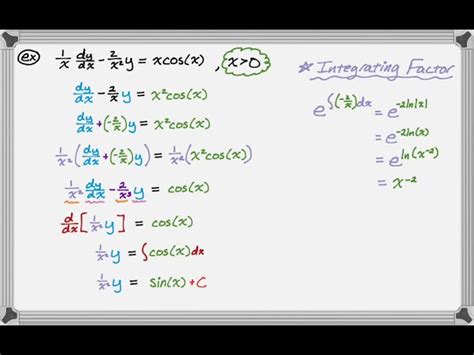 ex 1/x dy/dx - 2/x² y = xcos(x) , x>0
dy/dx - 2/x y = x²cos(x)
dy/dx + (-2/x) y = x²cos(x)
1/x² (dy/dx + (-2/x) y) = 1/x² (x²cos(x))
1/x² dy/dx - 2/x³ y = cos(x)
d/dx [1/x² y] = cos(x)
1/x² y = ∫cos(x)dx
1/x² y = sin(x) + C
* Integrating Factor
e^∫(-2/x)dx = e^-2ln|x|
= e^-2ln(x)
= e^ln(x^-2)
= x^-2